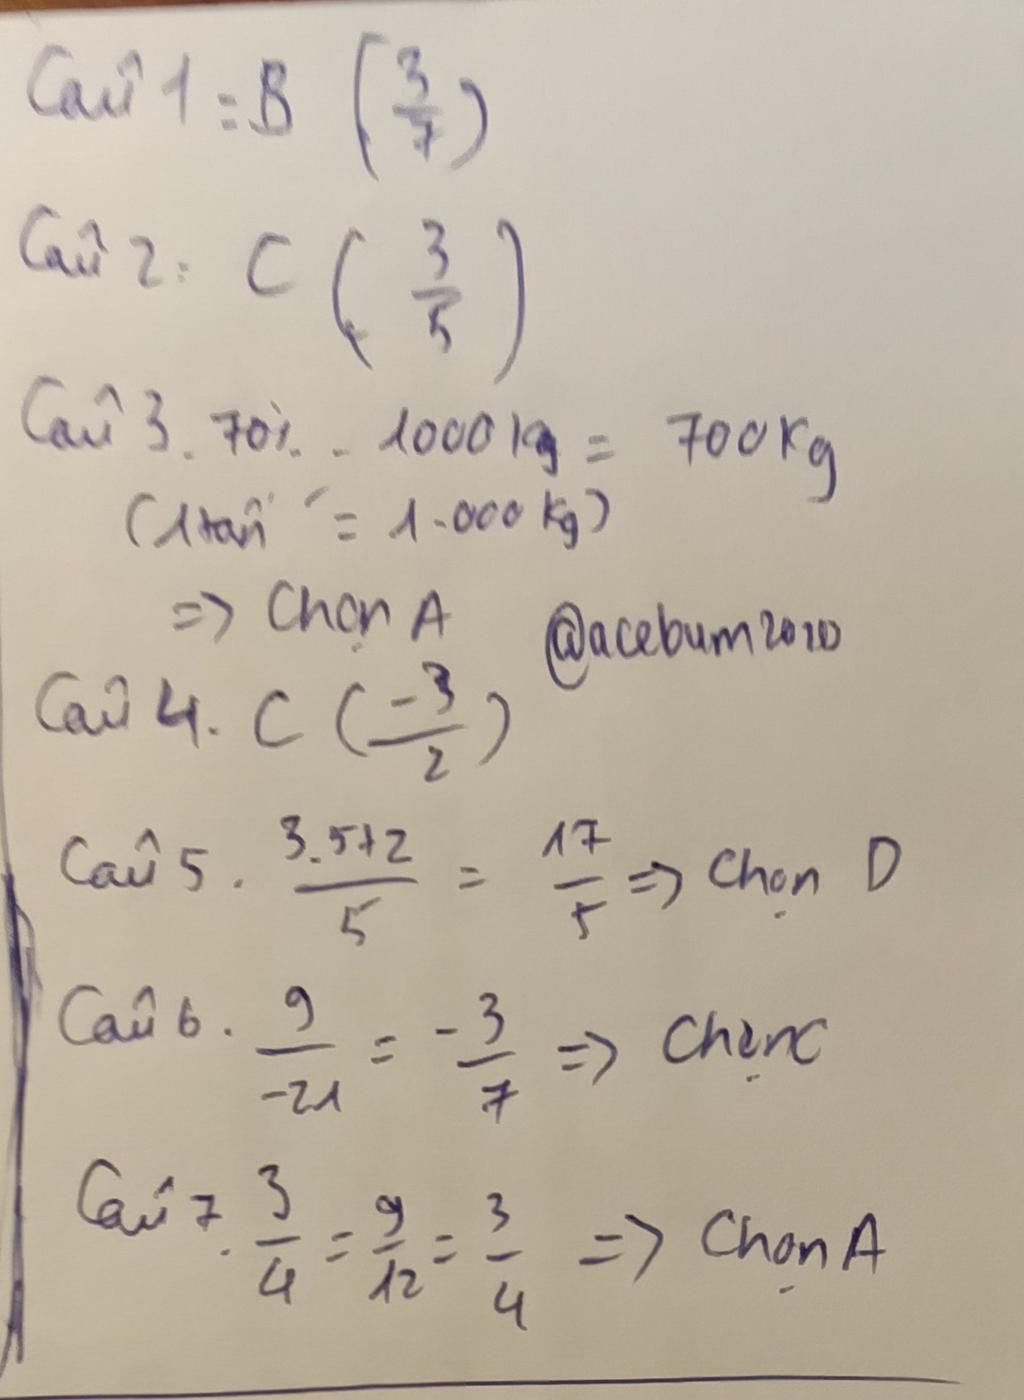 Câu 1: B (3/7)
Câu 2: C (3/5)
Câu 3. 70%. 1000kg = 700kg
(1 tấn = 1.000kg)
=> Chọn A @acebum2010
Câu 4. C (-3/2)
Câu 5. 3.5+2/5 = 17/5 => Chọn D
Câu 6. 9/-21 = -3/7 => Chọn C
Câu 7. 3/4 = 9/12 = 3/4 => Chọn A